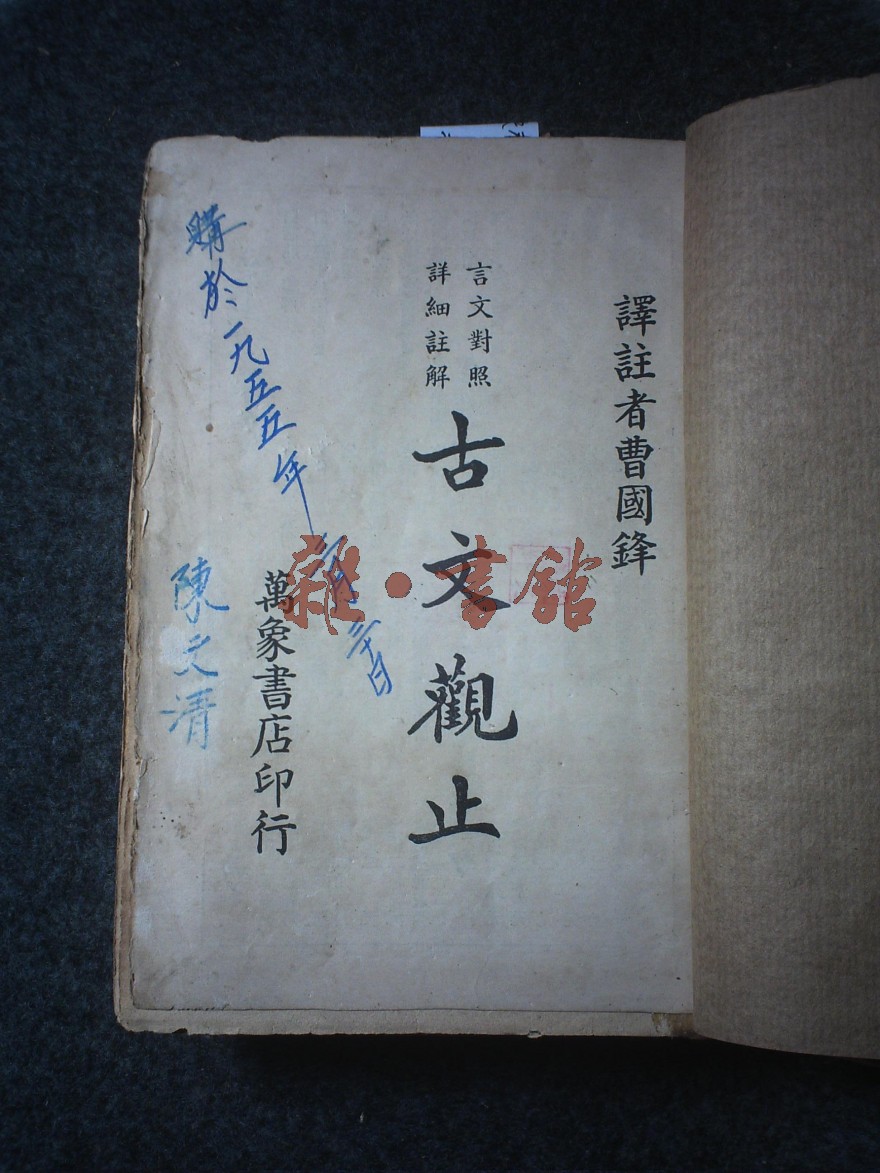 譯註者曹國鋒
言文對照
詳細註解
古文觀止
萬象書店印行
購於一九五五年
陳文清
雜·書館